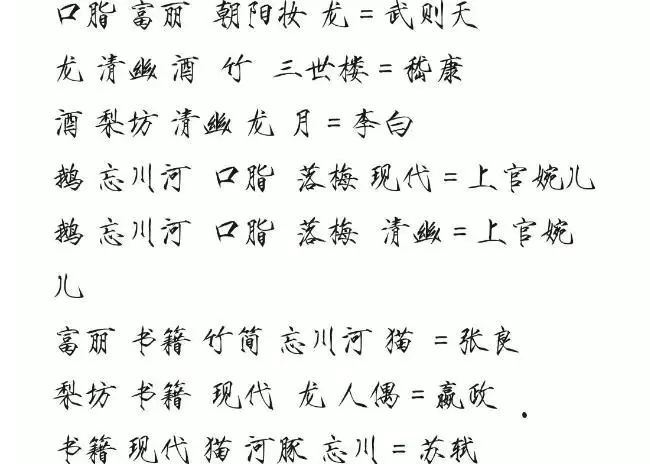 口脂 富丽 朝阳妆 龙 = 武则天
龙 清幽 酒 竹 三世楼 = 嵇康
酒 梨坊 清幽 龙 月 = 李白
鹅 忘川河 口脂 落梅 现代 = 上官婉儿
鹅 忘川河 口脂 落梅 清幽 = 上官婉
儿
富丽 书籍 竹简 忘川河 猫 = 张良
梨坊 书籍 现代 龙 人偶 = 嬴政 .
书籍 现代 猫 河豚 忘川 = 苏轼